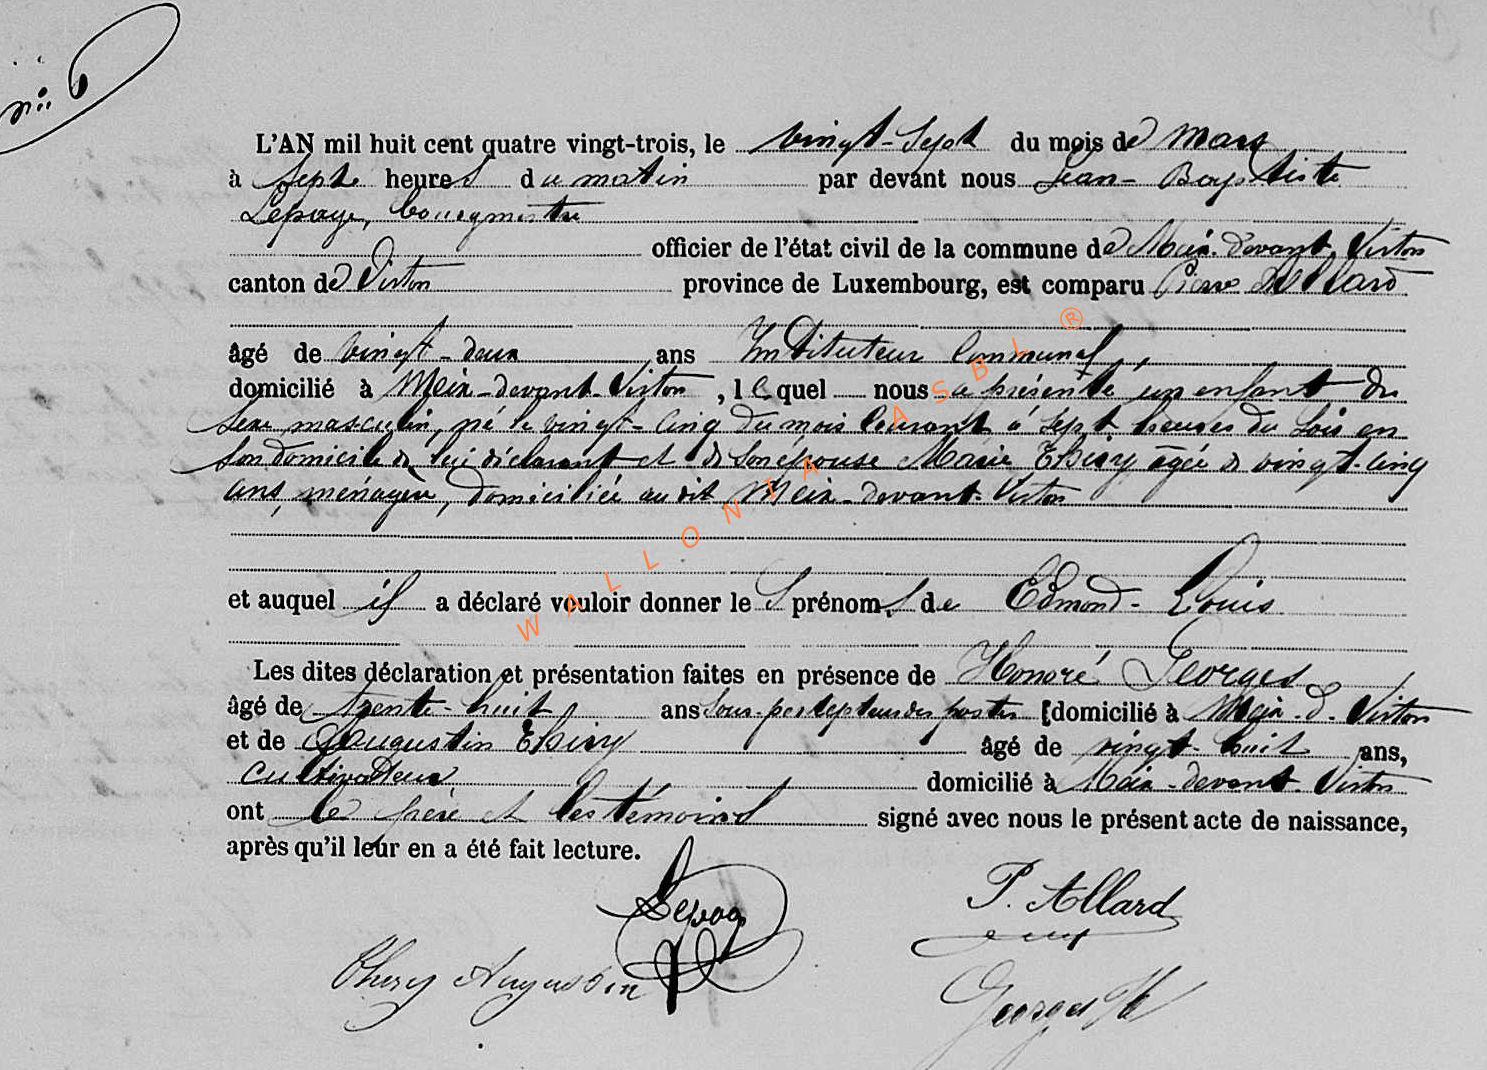 n° 6
L'AN mil huit cent quatre vingt-trois, le vingt-sept du mois de mars
à sept heures du matin par devant nous Jean-Baptiste
Lepage, bourgmestre
officier de l'état civil de la commune de Meix-devant-Virton
canton de Virton province de Luxembourg, est comparu Pierre Allard
âgé de vingt-deux ans Instituteur communal,
domicilié à Meix-devant-Virton, lequel nous a présenté un enfant du
sexe masculin, né le vingt-cinq du mois courant à sept heures du soir en
son domicile de lui déclarant et de son épouse Marie Thiry âgée de vingt-cinq
ans, ménagère, domiciliée au dit Meix-devant-Virton
et auquel il a déclaré vouloir donner les prénoms de Edmond-Louis
Les dites déclaration et présentation faites en présence de Honoré Georges
âgé de trente-huit ans Sous-percepteur des postes domicilié à Meix-d-Virton
et de Augustin Thiry âgé de vingt-huit ans,
cultivateur domicilié à Meix-devant-Virton
ont le père et les témoins signé avec nous le présent acte de naissance,
après qu'il leur en a été fait lecture.
Lepage
P. Allard
Thiry Augustin
Georges H
WALLONIA ASBL ®